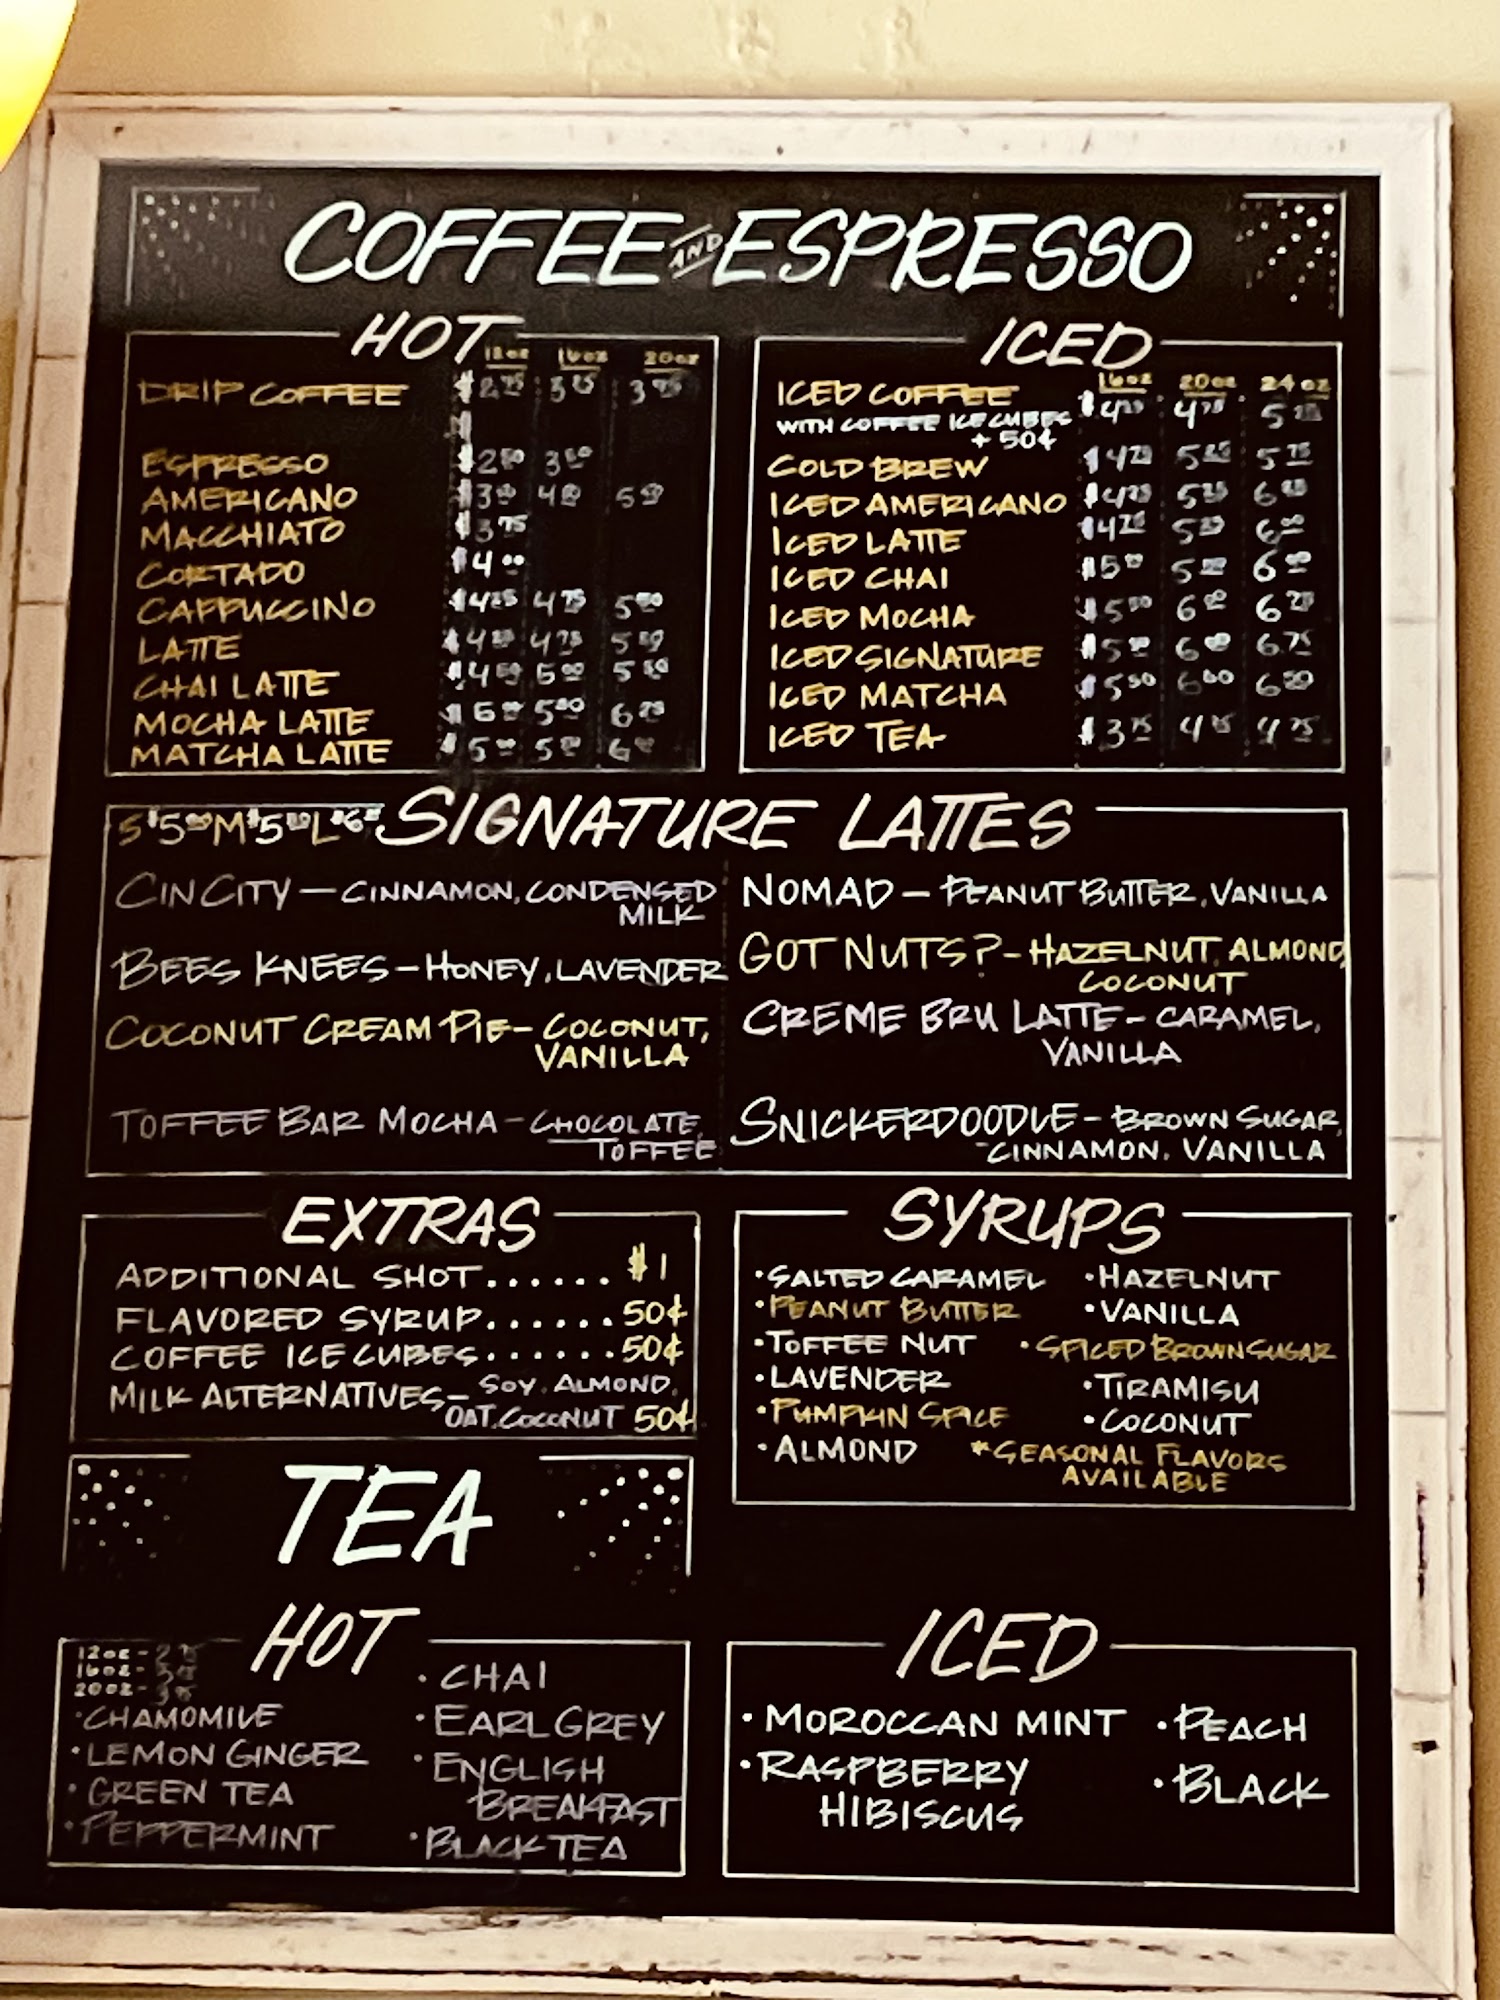 COFFEE AND ESPRESSO
HOT
12oz 16oz 20oz
DRIP COFFEE $2.75 3.25 3.75
ESPRESSO $2.50 3.50
AMERICANO $3.00 4.00 5.00
MACCHIATO $3.75
CORTADO $4.00
CAPPUCCINO $4.25 4.75 5.50
LATTE 4.75
CHAI LATTE $4.50 5.00 5.50
MOCHA LATTE 5.50 6.25
MATCHA LATTE $5.00
ICED
16oz 20oz 24oz
ICED COFFEE $4.25 4.75
WITH COFFEE ICE CUBES
+ 50¢
COLD BREW $4.75 5.25 5.75
ICED AMERICANO 5.25
ICED LATTE 6.00
ICED CHAI 6.00
ICED MOCHA $5.50 6.00 6.75
ICED SIGNATURE 6.00 6.75
ICED MATCHA $5.50 6.00 6.50
ICED TEA $3.75 4.25 4.75
SIGNATURE LATTES
CIN CITY - CINNAMON, CONDENSED
MILK
BEES KNEES - HONEY, LAVENDER
COCONUT CREAM PIE - COCONUT,
VANILLA
TOFFEE BAR MOCHA - CHOCOLATE,
TOFFEE
NOMAD - PEANUT BUTTER, VANILLA
GOT NUTS? - HAZELNUT, ALMOND,
COCONUT
CREME BRU LATTE - CARAMEL,
VANILLA
SNICKERDOODLE - BROWN SUGAR,
CINNAMON, VANILLA
EXTRAS
ADDITIONAL SHOT...... $1
FLAVORED SYRUP...... 50¢
COFFEE ICE CUBES...... 50¢
MILK ALTERNATIVES - SOY, ALMOND,
OAT, COCONUT 50¢
SYRUPS
• SALTED CARAMEL
• PEANUT BUTTER
• TOFFEE NUT
• LAVENDER
• PUMPKIN SPICE
• ALMOND
• HAZELNUT
• VANILLA
• SPICED BROWN SUGAR
• TIRAMISU
• COCONUT
*SEASONAL FLAVORS
AVAILABLE
TEA
HOT
12oz -
16oz -
20oz -
• CHAMOMILE
• LEMON GINGER
• GREEN TEA
• PEPPERMINT
• CHAI
• EARL GREY
• ENGLISH
BREAKFAST
• BLACK TEA
ICED
• MOROCCAN MINT
• RASPBERRY
HIBISCUS
• PEACH
• BLACK